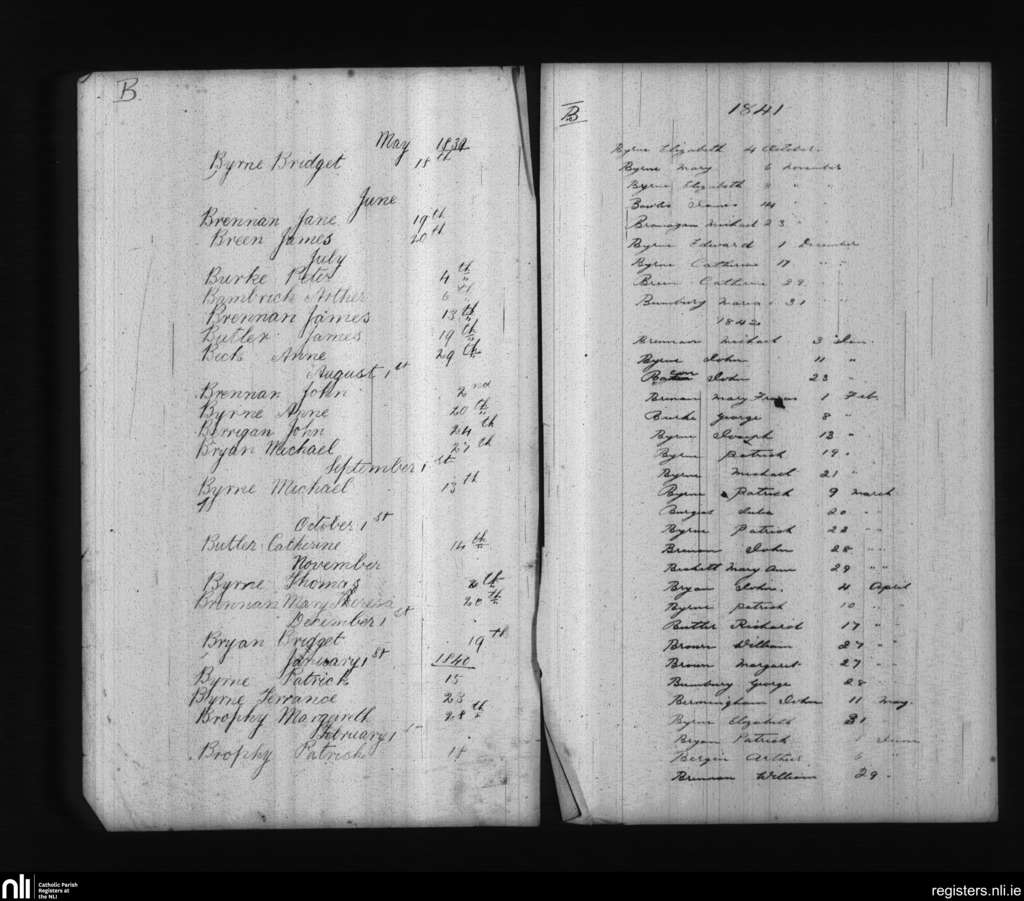 B
May 1839
Byrne Bridget 18th
June
Brennan Jane 19th
Breen James 20th
July
Burke Peter 4th
Bambrick 6th
Brennan James 13th
Butler James 19th
Beck Anne 29th
August 1st
Brennan John 2nd
Byrne Anne 20th
Berrigan John 24th
Bryan Michael 27th
September 1st
Byrne Michael 13th
October 1st
Butler Catherine 14th
November
Byrne Thomas 6th
Brennan Mary Theresa 20th
December 1st
Bryan Bridget 19th
January 1st 1840
Byrne Patrick 15
Byrne Terrance 23
Brophy Margarett 28th
February 1st
Brophy Patrick 18
B
1841
Byrne Elizabeth 4 October.
Byrne Mary 6 November
Byrne Elizabeth " "
Bowles James 14 "
Branagan Michael 23 "
Byrne Edward 1 December
Byrne Catherine 17 " "
Breen Catherine 29 " "
Bumbury Maria 31 " "
1842
Brennan Michael 3 Jan.
Byrne John 11 "
John 23 "
Brenan Mary Frances 1 Feb.
Burke George 8 "
Byrne Joseph 13 "
Byrne Patrick 19 "
Byrne Michael 21 "
Byrne Patrick 9 March
Burges Julia 20 " "
Byrne Patrick 22 " "
Brennan John 28 " "
Beckett Mary Ann 29 " "
Bryan John. 4 April
Byrne Patrick 10 " "
Butler Richard 17 " "
Brown William 27 " "
Brown Margaret 27 " "
Bumbury George 28 " "
Bermingham John 11 May.
Byrne Elizabeth 21 "
Bryan Patrick 1 June
Bergin Arthur 6 "
Brennan William 29 "
nli
Catholic Parish
Registers at
the NLI
registers.nli.ie